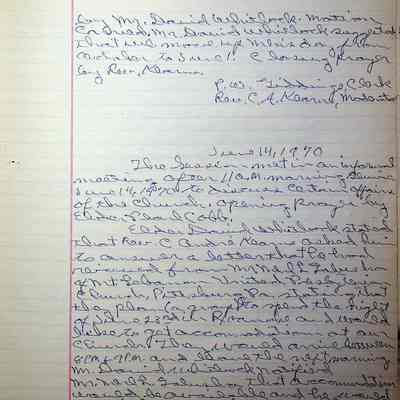 by Mr. David Whitlock. Motion
Carried. Mr. David Whitlock suggested
that we move up Men's Day from
October to June. Closing prayer
by Rev. Kearns.
P.W. Giddings, Clerk
Rev. C.A. Kearns, Moderator
June 14, 1970
The Session met in an informal
meeting after 11 A.M. morning service
June 14, 1970 to discuss certain affairs
of the Church. Opening prayer by
Elder Pearl Cobb.
Elder David Whitlock stated
that Rev. C. André Kearns asked him
to answer a letter that he had
received from Mr. Neil L.
of Mt. United Presbyterian
Church, Pittsburgh, Pa. stating that
they plan to spend the night
of in and would
like to get accommodations at our
Church. They would arrive between
6 P.M. & 7 P.M. and leave the next morning
Mr. David Whitlock notified
Mr. Neil L. that accommodations
would be available and he would